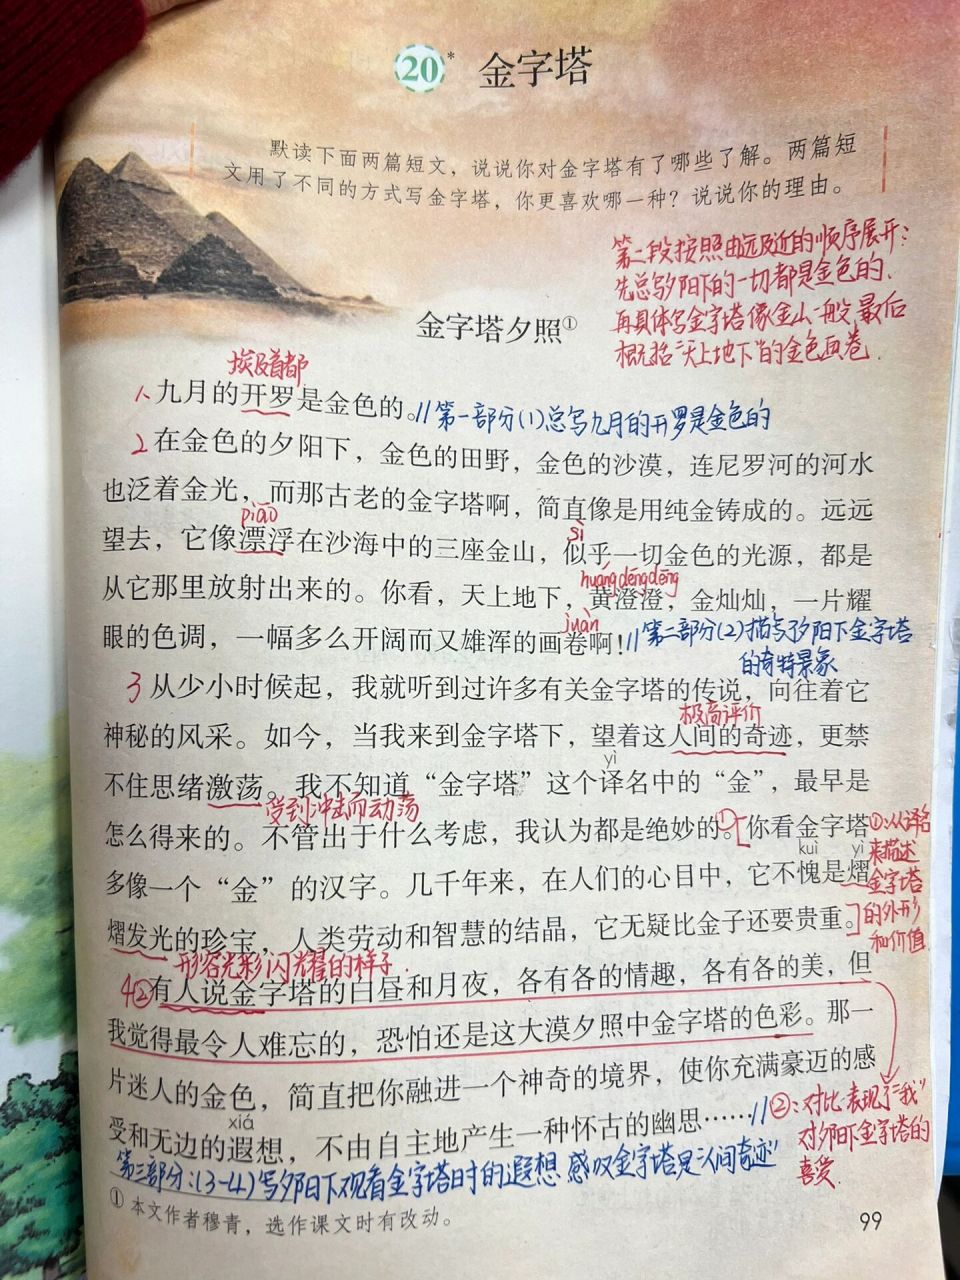 20* 金字塔
默读下面两篇短文，说说你对金字塔有了哪些了解。两篇短
文用了不同的方式写金字塔，你更喜欢哪一种？说说你的理由。
第二段按照由远及近的顺序展开：
先总写夕阳下的一切都是金色的、
再具体写金字塔像金山一般，最后
概括“天上地下”的金色画卷.
金字塔夕照①
埃及首都
1、九月的开罗是金色的。//第一部分(1)总写九月的开罗是金色的
2 在金色的夕阳下，金色的田野，金色的沙漠，连尼罗河的河水
也泛着金光，而那古老的金字塔啊，简直像是用纯金铸成的。远远
piāo
sì
望去，它像漂浮在沙海中的三座金山，似乎一切金色的光源，都是
huángdēngdēng
从它那里放射出来的。你看，天上地下，黄澄澄，金灿灿，一片耀
juàn
眼的色调，一幅多么开阔而又雄浑的画卷啊！//第二部分(2)描写夕阳下金字塔
的奇特景象
3 从少小时候起，我就听到过许多有关金字塔的传说，向往着它
极高评价
神秘的风采。如今，当我来到金字塔下，望着这人间的奇迹，更禁
yì
不住思绪激荡。我不知道“金字塔”这个译名中的“金”，最早是
受到冲击而动荡
怎么得来的。不管出于什么考虑，我认为都是绝妙的。①[你看金字塔
①：从译名
来描述
金字塔
的外形
和价值
kuì yì
多像一个“金”的汉字。几千年来，在人们的心目中，它不愧是熠
熠发光的珍宝，人类劳动和智慧的结晶，它无疑比金子还要贵重。]
形容光彩闪耀的样子.
4②有人说金字塔的白昼和月夜，各有各的情趣，各有各的美，但
我觉得最令人难忘的，恐怕还是这大漠夕照中金字塔的色彩。那一
片迷人的金色，简直把你融进一个神奇的境界，使你充满豪迈的感
xiá
受和无边的遐想，不由自主地产生一种怀古的幽思……//
②：对比表现了“我”
对夕阳下金字塔的
喜爱.
第三部分：(3-4)写夕阳下观看金字塔时的遐想感叹金字塔是“人间奇迹”
① 本文作者穆青，选作课文时有改动。
99